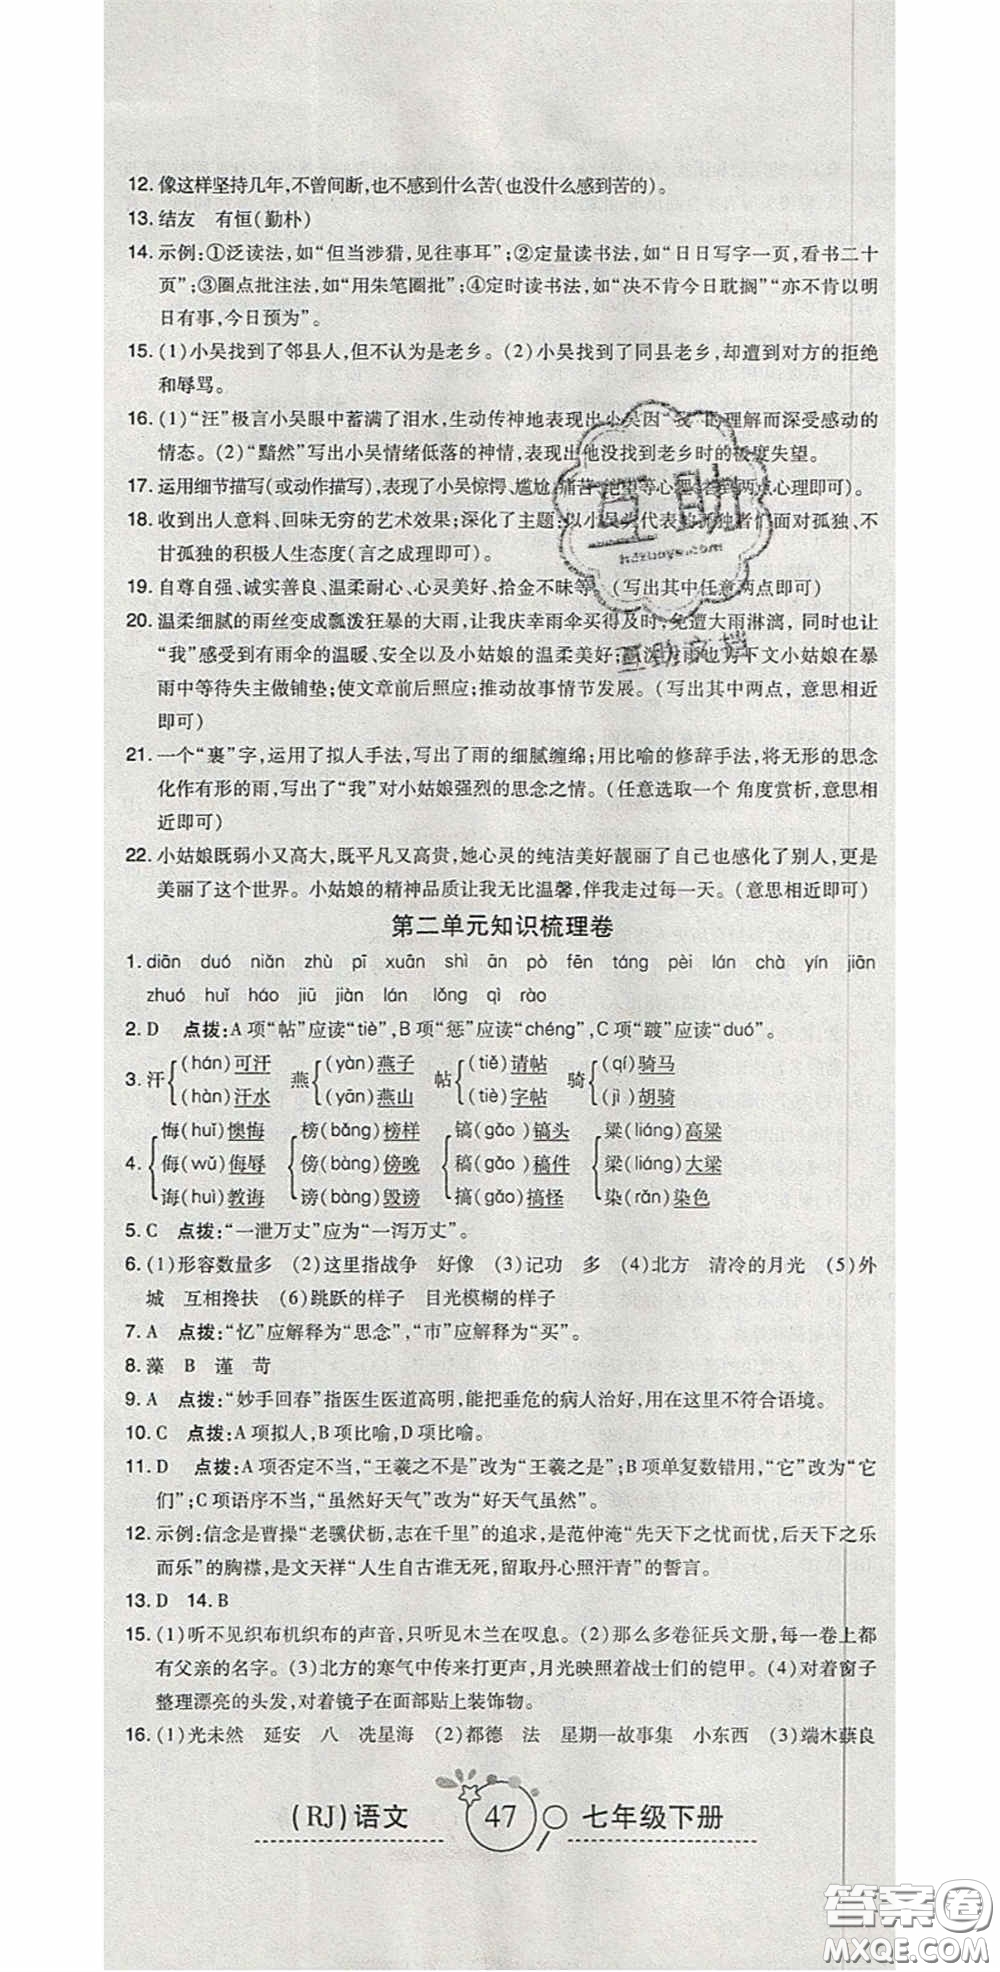 12. 像这样坚持几年,不曾间断,也不感到什么苦(也没什么感到苦的)。
13. 结友 有恒(勤朴)
14. 示例:①泛读法,如“但当涉猎,见往事耳”;②定量读书法,如“日日写字一页,看书二十
页”;③圈点批注法,如“用朱笔圈批”;④定时读书法,如“决不肯今日耽搁”“亦不肯以明
日有事,今日预为”。
15. (1)小吴找到了邻县人,但不认为是老乡。(2)小吴找到了同县老乡,却遭到对方的拒绝
和辱骂。
16. (1)“汪”极言小吴眼中蓄满了泪水,生动传神地表现出小吴因“我”的理解而深受感动的
情态。(2)“黯然”写出小吴情绪低落的神情,表现出他没有找到老乡时的极度失望。
17. 运用细节描写(或动作描写),表现了小吴惊愕、尴尬、痛苦、绝望等心理(答到两点心理即可)。
18. 收到出人意料、回味无穷的艺术效果;深化了主题:以小吴为代表的孤独者们面对孤独、不
甘孤独的积极人生态度(言之成理即可)。
19. 自尊自强、诚实善良、温柔耐心、心灵美好、拾金不昧等。(写出其中任意两点即可)
20. 温柔细腻的雨丝变成瓢泼狂暴的大雨,让我庆幸雨伞买得及时,免遭大雨淋漓,同时也让
“我”感受到有雨伞的温暖、安全以及小姑娘的温柔美好;瓢泼大雨也为下文小姑娘在暴
雨中等待失主做铺垫;使文章前后照应;推动故事情节发展。(写出其中两点,意思相近
即可)
21. 一个“裹”字,运用了拟人手法,写出了雨的细腻缠绵;用比喻的修辞手法,将无形的思念
化作有形的雨,写出了“我”对小姑娘强烈的思念之情。(任意选取一个 角度赏析,意思相
近即可)
22. 小姑娘既弱小又高大,既平凡又高贵,她心灵的纯洁美好靓丽了自己也感化了别人,更是
美丽了这个世界。小姑娘的精神品质让我无比温馨,伴我走过每一天。(意思相近即可)
第二单元知识梳理卷
1. diān duó niǎn zhù pī xuān shì ān pò fēn táng pèi lán chà yín jiān
zhuó huǐ háo jiū jiàn lán lǒng qì rào
2. D 点拨:A 项“帖”应读“tiè”,B 项“惩”应读“chéng”,C 项“踱”应读“duó”。
(hán)可汗 (yàn)燕子 (tiě)请帖 (qí)骑马
3. 汗 燕 帖 骑
(hàn)汗水 (yān)燕山 (tiè)字帖 (jì)胡骑
悔(huǐ)懊悔 榜(bǎng)榜样 镐(gǎo)镐头 粱(liáng)高粱
4. 侮(wǔ)侮辱 傍(bàng)傍晚 稿(gǎo)稿件 梁(liáng)大梁
诲(huì)教诲 谤(bàng)毁谤 搞(gǎo)搞怪 染(rǎn)染色
5. C 点拨:“一泄万丈”应为“一泻万丈”。
6. (1)形容数量多 (2)这里指战争 好像 (3)记功 多 (4)北方 清冷的月光 (5)外
城 互相搀扶 (6)跳跃的样子 目光模糊的样子
7. A 点拨:“忆”应解释为“思念”,“市”应解释为“买”。
8. 藻 B 谨 苛
9. A 点拨:“妙手回春”指医生医道高明,能把垂危的病人治好,用在这里不符合语境。
10. C 点拨:A 项拟人,B 项比喻,D 项比喻。
11. D 点拨:A 项否定不当,“王羲之不是”改为“王羲之是”;B 项单复数错用,“它”改为“它
们”;C 项语序不当,“虽然好天气”改为“好天气虽然”。
12. 示例:信念是曹操“老骥伏枥,志在千里”的追求,是范仲淹“先天下之忧而忧,后天下之乐
而乐”的胸襟,是文天祥“人生自古谁无死,留取丹心照汗青”的誓言。
13. D 14. B
15. (1)听不见织布机织布的声音,只听见木兰在叹息。(2)那么多卷征兵文册,每一卷上都
有父亲的名字。(3)北方的寒气中传来打更声,月光映照着战士们的铠甲。(4)对着窗子
整理漂亮的头发,对着镜子在面部贴上装饰物。
16. (1)光未然 延安 八 冼星海 (2)都德 法 星期一故事集 小东西 (3)端木蕻良
(RJ)语文 47 七年级下册
互助
hdzuoye.com
互助文档
答案圈
MXQE.COM